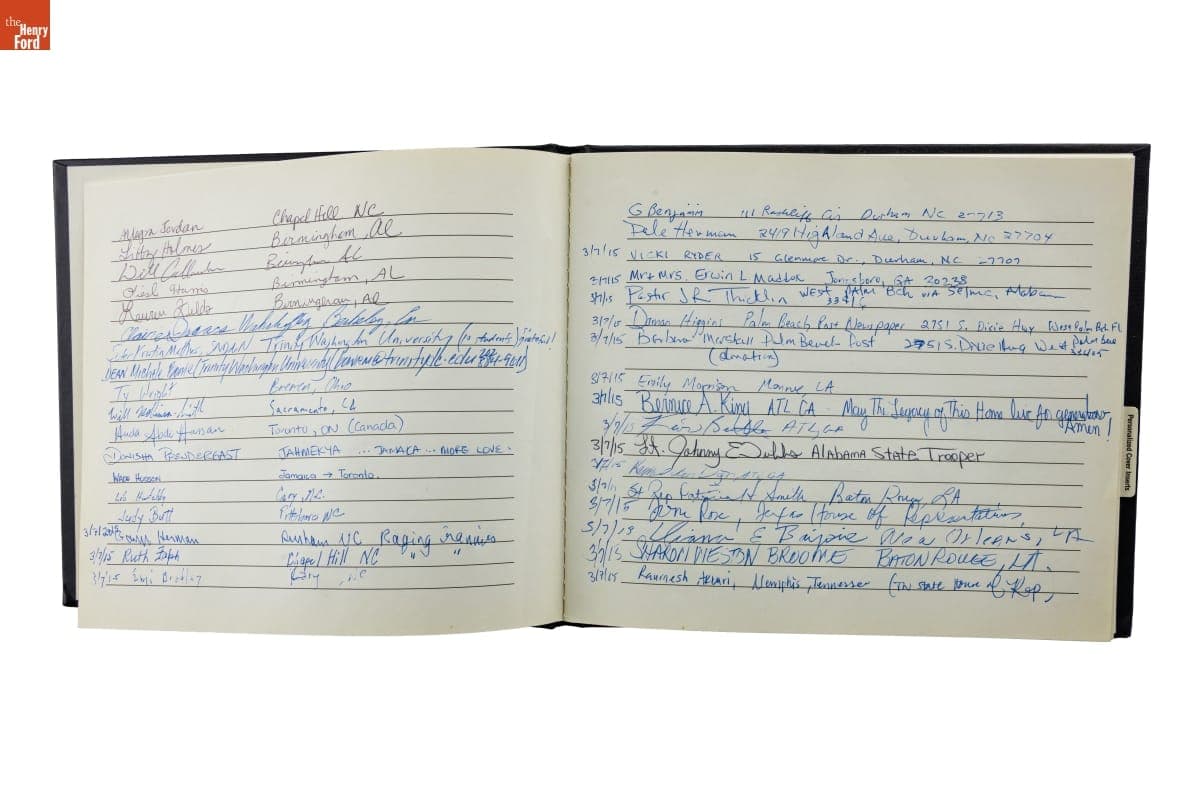 the
Henry
Ford
Jordan Chapel Hill NC
Holmes Birmingham, AL
Will Birmingham AL
Birmingham, AL
Lauren Birmingham, AL
Berkeley, Ca
Trinity Washington University (10 students) grateful!
DEAN Michele (Trinity Washington University)
Ty Wright Bremen, Ohio
Will Sacramento, CA
Huda Abdi Hassan Toronto, ON (Canada)
DONISHA PRENDERGAST JAHMEKYA ... JAMAICA ... MORE LOVE.
WADE HUDSON Jamaica → Toronto.
Cary, N.C.
Judy Pittsboro NC
3/7/2015 Herman Durham NC Raging Grannies
3/7/15 Ruth Chapel Hill NC " "
3/7/15 Cary, NC
G Benjamin 111 Cir Durham NC 27713
Dele Herman 2419 Highland Ave, Durham, NC 27704
3/7/15 VICKI RYDER 15 Glenmore Dr., Durham, NC 27707
3/7/15 Mr + Mrs. Erwin L Maddox Jonesboro, GA 30238
3/7/15 Pastor JR Thicklin West Palm Bch via Selma, Alabama
3/7/15 Damon Higgins Palm Beach Post Newspaper 2751 S. Dixie Hwy West Palm Bch FL
3/7/15 Barbara Marshall Palm Beach Post 2751 S. Dixie Hwy West Palm Beach
33405
(donation)
3/7/15 Emily Morrison Monroe, LA
3/7/15 Bernice A. King ATL GA - May The Legacy of This Home live for generations.
Amen!
3/7/15 ATL, GA
3/7/15 Lt. Johnny Alabama State Trooper
3/7/15 ATL GA
St Rep Patricia H Smith, Baton Rouge LA
3/7/15 Rose, Texas House of Representatives,
3/7/15 E New Orleans, LA
3/7/15 SHARON WESTON BROOME BATON ROUGE, LA.
3/7/15 Raumesh Akbari, Memphis, Tennessee (TN State House of Rep,
Personalized Cover Inserts